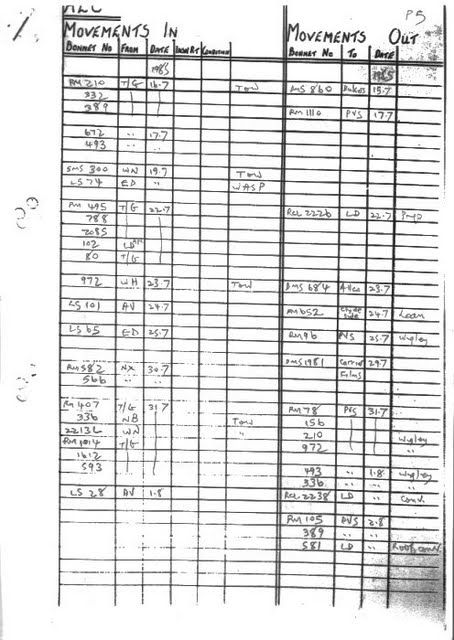 AEC
P5
MOVEMENTS IN
BONNET NO FROM DATE INSURT CONDITION
1985
RM 210 T/G 16.7 TOW
332
389
672 " 17.7
493 " "
SMS 300 WN 19.7 TOW
LS 74 ED " WASP
RM 495 T/G 22.7
788
2085
102
80 T/G
972 WH 23.7 TOW
LS 101 AV 24.7
LS 65 ED 25.7
RM 582 NX 30.7
566 " "
RM 407 T/G 31.7
336 NB TOW
2213L WN "
RM 1014 T/G
1612
593
LS 28 AV 1.8
MOVEMENTS OUT
BONNET NO TO DATE
1985
DMS 860 15.7
RM 1110 PVS 17.7
RCL 2226 LD 22.7
DMS 684 23.7
RM 652 Clydeside 24.7 Loan
RM 96 PVS 25.7 Wigley
DMS 1981 Carrier Films 29.7
RM 78 PVS 31.7
156
210 Wigley
972 "
493 " 1.8 Wigley
336 " " "
RCL 2238 LD " Conv.
RM 105 PVS 2.8
389 " "
581 LD " Roof conv.